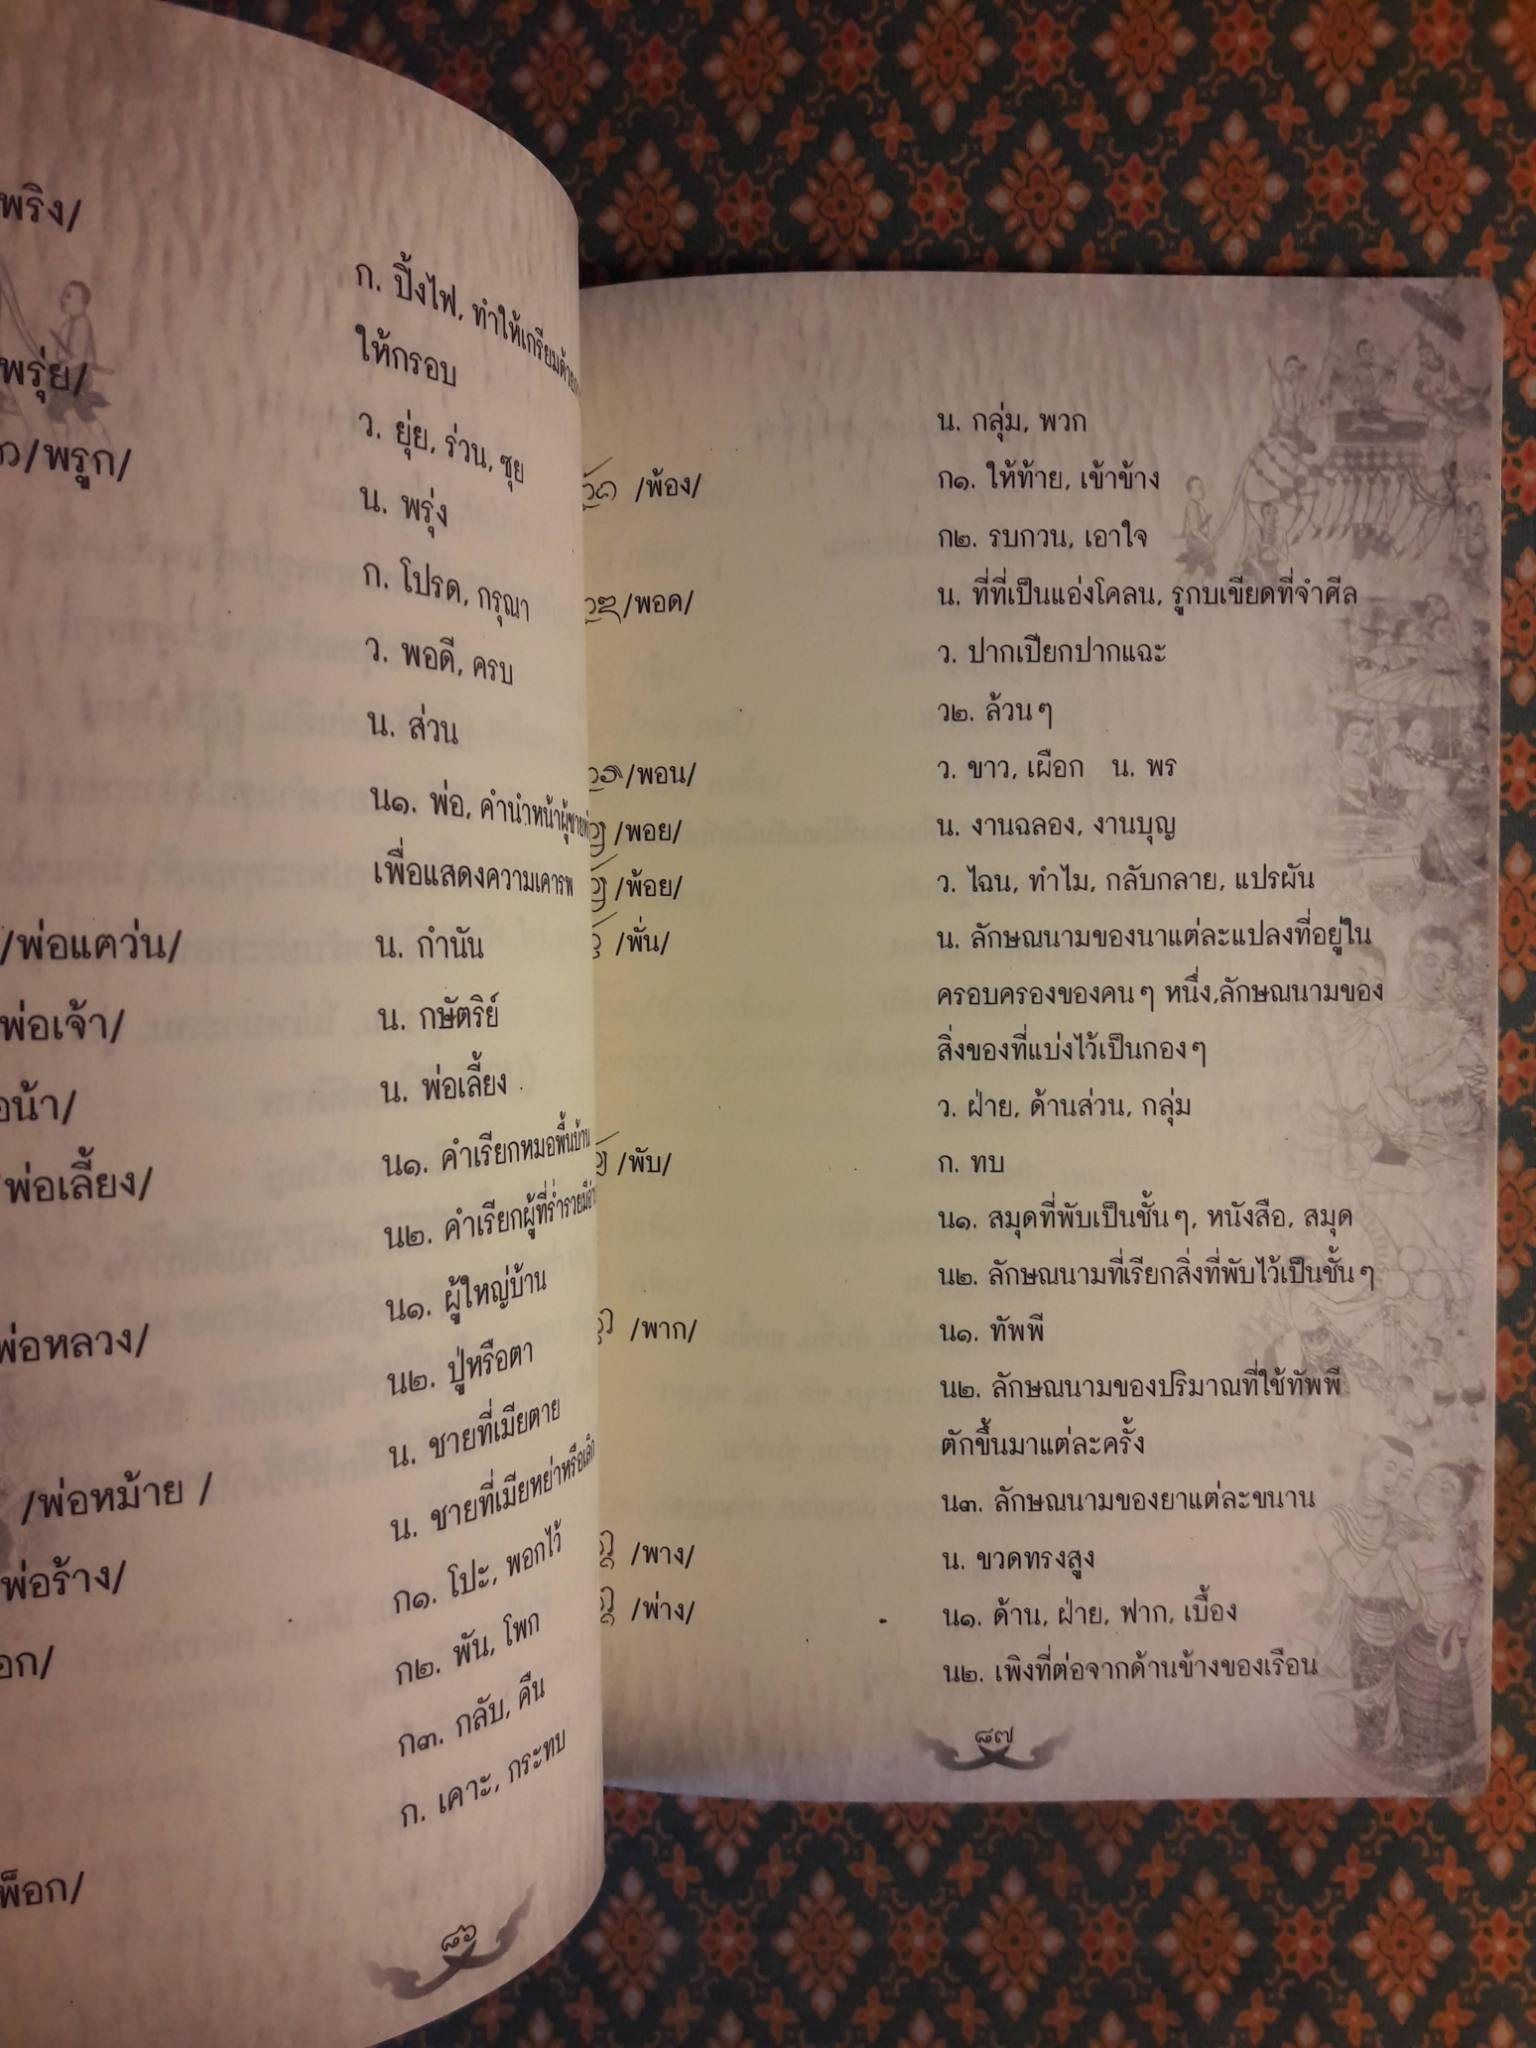 พริง/
ก. ปิ้งไฟ, ทำให้เกรียมด้วย
ให้กรอบ
พรุ่ย/
ว. ยุ่ย, ร่วน, ซุย
/พรูก/
น. พรุ่ง
ก. โปรด, กรุณา
ว. พอดี, ครบ
น. ส่วน
น๑. พ่อ, คำนำหน้าผู้ชาย
เพื่อแสดงความเคารพ
/พ่อแคว่น/ น. กำนัน
พ่อเจ้า/ น. กษัตริย์
น้า/ น. พ่อเลี้ยง
พ่อเลี้ยง/ น๑. คำเรียกหมอพื้นบ้าน
น๒. คำเรียกผู้ที่ร่ำรวย
พ่อหลวง/ น๑. ผู้ใหญ่บ้าน
น๒. ปู่หรือตา
/พ่อหม้าย / น. ชายที่เมียตาย
พ่อร้าง/ น. ชายที่เมียหย่าหรือเลิก
อก/ ก๑. โปะ, พอกไว้
ก๒. พัน, โพก
ก๓. กลับ, คืน
พ็อก/ ก. เคาะ, กระทบ
๘๖
น. กลุ่ม, พวก
/พ้อง/ ก๑. ให้ท้าย, เข้าข้าง
ก๒. รบกวน, เอาใจ
/พอด/ น. ที่ที่เป็นแอ่งโคลน, รูกบเขียดที่จำศีล
ว. ปากเปียกปากแฉะ
ว๒. ล้วนๆ
/พอน/ ว. ขาว, เผือก น. พร
/พอย/ น. งานฉลอง, งานบุญ
/พ้อย/ ว. ไฉน, ทำไม, กลับกลาย, แปรผัน
/พั่น/ น. ลักษณนามของนาแต่ละแปลงที่อยู่ใน
ครอบครองของคนๆ หนึ่ง,ลักษณนามของ
สิ่งของที่แบ่งไว้เป็นกองๆ
ว. ฝ่าย, ด้านส่วน, กลุ่ม
/พับ/ ก. ทบ
น๑. สมุดที่พับเป็นชั้นๆ, หนังสือ, สมุด
น๒. ลักษณนามที่เรียกสิ่งที่พับไว้เป็นชั้นๆ
/พาก/ น๑. ทัพพี
น๒. ลักษณนามของปริมาณที่ใช้ทัพพี
ตักขึ้นมาแต่ละครั้ง
น๓. ลักษณนามของยาแต่ละขนาน
/พาง/ น. ขวดทรงสูง
/พ่าง/ น๑. ด้าน, ฝ่าย, ฟาก, เบื้อง
น๒. เพิงที่ต่อจากด้านข้างของเรือน
๘๗